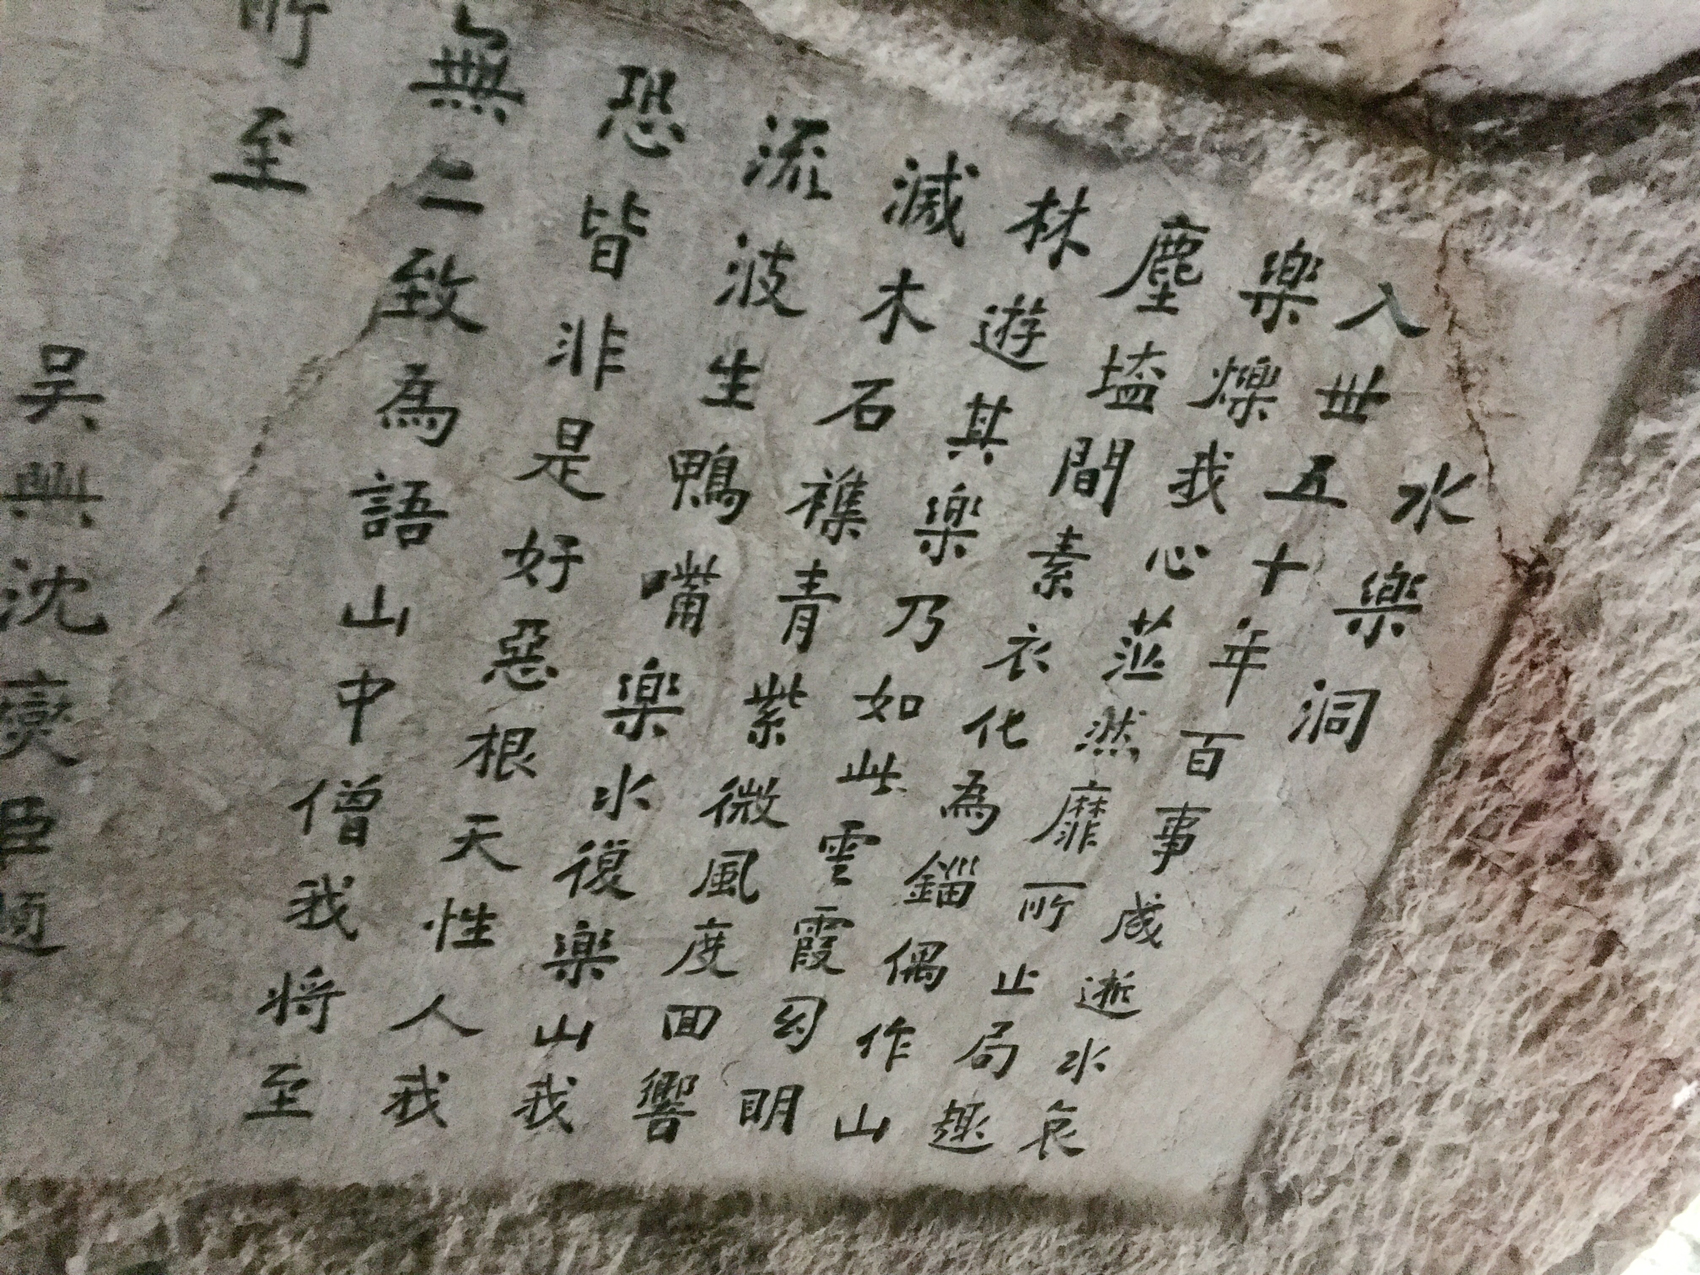 水樂洞
入世五十年百事成逝水哀
樂爍我心茫然靡所止局趣
塵壒間素衣化為錙偶作山
林遊其樂乃如此雲霞幻明
滅木石襍青紫微風度回響
流波生鴨嘴樂水復樂山我
恐皆非是好惡根天性人我
無二致為語山中僧我將至
所至
吳興沈燮臣題